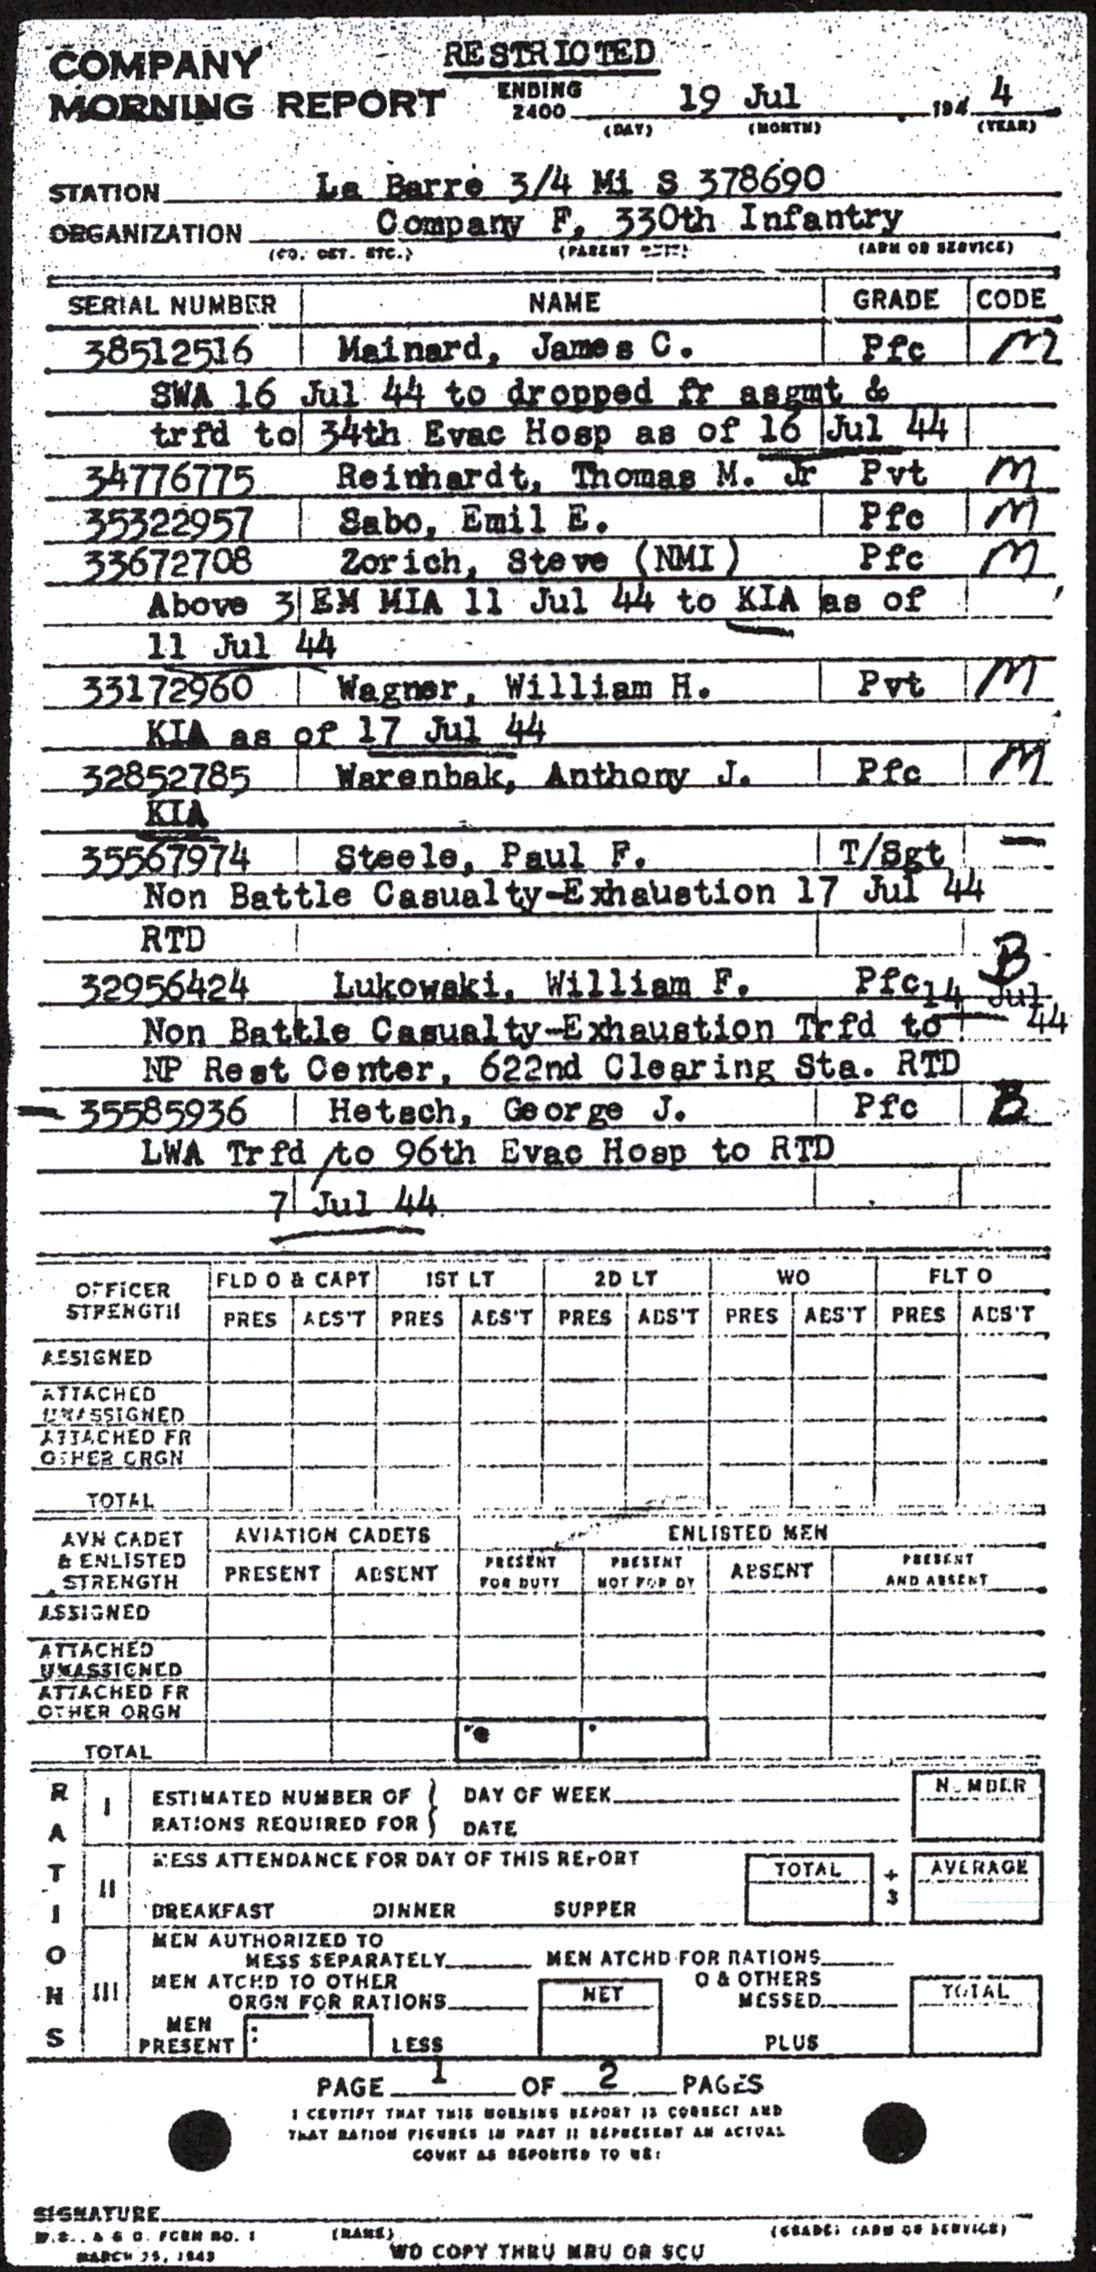 RESTRICTED
COMPANY
MORNING REPORT ENDING 2400 19 Jul 194 4
(DAY) (MONTH) (YEAR)
STATION La Barre 3/4 Mi S 378690
ORGANIZATION Company F, 330th Infantry
(CO. DET. ETC.) (PARENT UNIT) (ARM OR SERVICE)
SERIAL NUMBER NAME GRADE CODE
38512516 Mainard, James C. Pfc M
SWA 16 Jul 44 to dropped fr asgmt &
trfd to 34th Evac Hosp as of 16 Jul 44
34776775 Reinhardt, Thomas M. Jr Pvt M
35322957 Sabo, Emil E. Pfc M
33672708 Zorich, Steve (NMI) Pfc M
Above 3 EM MIA 11 Jul 44 to KIA as of
11 Jul 44
33172960 Wagner, William H. Pvt M
KIA as of 17 Jul 44
32852785 Warenbak, Anthony J. Pfc M
KIA
35567974 Steele, Paul F. T/Sgt —
Non Battle Casualty-Exhaustion 17 Jul 44
RTD
32956424 Lukowski, William F. Pfc B
14 Jul 44
Non Battle Casualty-Exhaustion Trfd to
NP Rest Center, 622nd Clearing Sta. RTD
— 35585936 Hetsch, George J. Pfc B
LWA Trfd / to 96th Evac Hosp to RTD
7 Jul 44
OFFICER STRENGTH FLD O & CAPT 1ST LT 2D LT WO FLT O
PRES ABS'T PRES ABS'T PRES ABS'T PRES ABS'T PRES ABS'T
ASSIGNED
ATTACHED
UNASSIGNED
ATTACHED FR
OTHER ORGN
TOTAL
AVN CADET & ENLISTED STRENGTH AVIATION CADETS ENLISTED MEN
PRESENT ABSENT PRESENT FOR DUTY PRESENT NOT FOR DY ABSENT PRESENT AND ABSENT
ASSIGNED
ATTACHED
UNASSIGNED
ATTACHED FR
OTHER ORGN
TOTAL
RATIONS
I ESTIMATED NUMBER OF RATIONS REQUIRED FOR } DAY OF WEEK
DATE
NUMBER
II MESS ATTENDANCE FOR DAY OF THIS REPORT TOTAL ÷ 3 AVERAGE
BREAKFAST DINNER SUPPER
III MEN AUTHORIZED TO
MESS SEPARATELY MEN ATCHD FOR RATIONS
MEN ATCHD TO OTHER
ORGN FOR RATIONS NET O & OTHERS MESSED TOTAL
MEN PRESENT LESS PLUS
PAGE 1 OF 2 PAGES
I CERTIFY THAT THIS MORNING REPORT IS CORRECT AND
THAT RATION FIGURES IN PART II REPRESENT AN ACTUAL
COUNT AS REPORTED TO ME:
SIGNATURE
(NAME) (GRADE) (ARM OR SERVICE)
W.D., A G O. FORM NO. 1
MARCH 25, 1943
WD COPY THRU MRU OR SCU